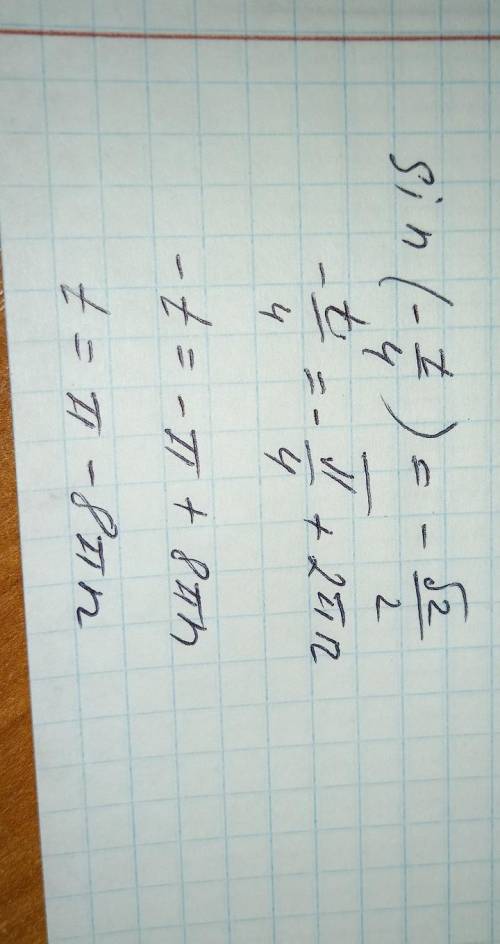 sin(-t/4) = -√2/2
-t/4 = -π/4 + 2πn
-t = -π + 8πn
t = π - 8πn